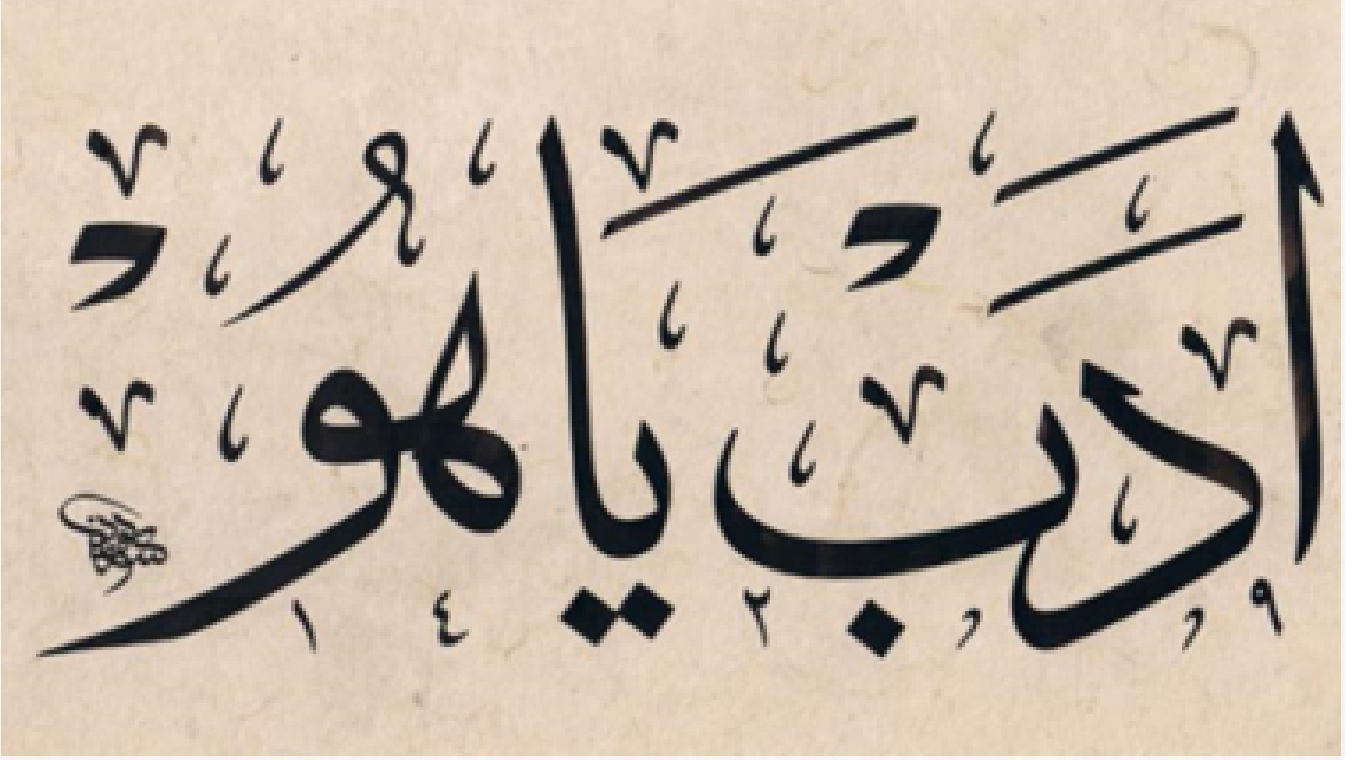 اَدَبْ يَا هُوْ
١٤٢٩